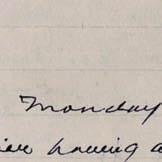 Monday
having a